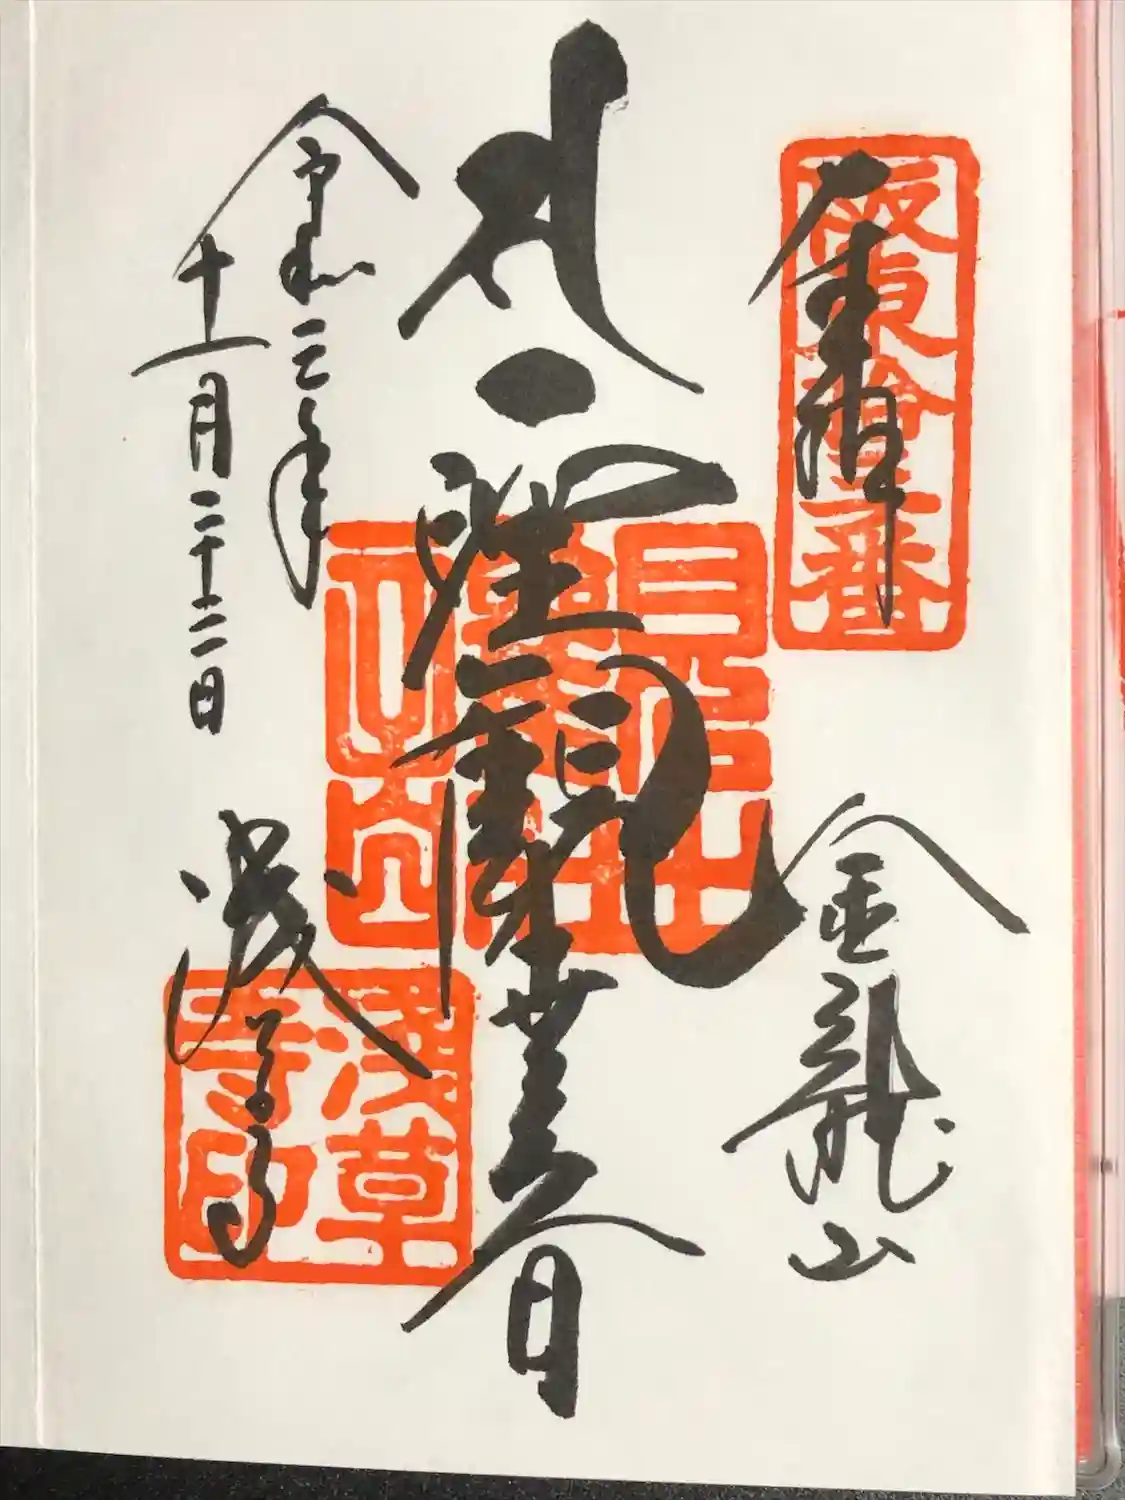 奉拝
坂東拾三番
金龍山
聖観世音
令和三年
十一月二十二日
浅草寺
浅草寺印